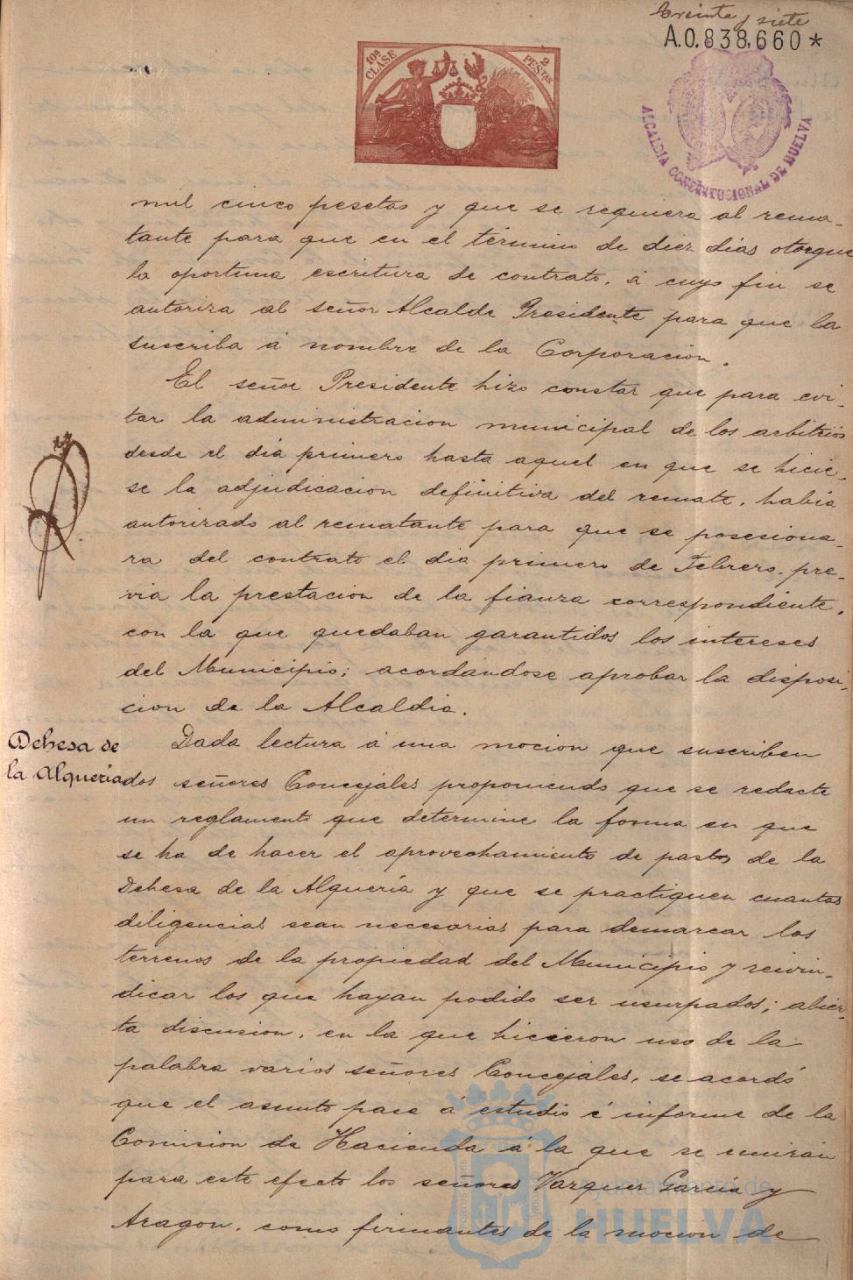 treinta y siete
A.0.838.660*
10ª CLASE
2 PESETAS
ALCALDIA CONSTITUCIONAL DE HUELVA
mil cinco pesetas y que se requiera al rema-
tante para que en el término de diez dias otorgue
la oportuna escritura de contrato, á cuyo fin se
autoriza al señor Alcalde Presidente para que la
suscriba á nombre de la Corporacion.
El señor Presidente hizo constar que para evi-
tar la administracion municipal de los arbitrios
desde el dia primero hasta aquel en que se hicie-
se la adjudicacion definitiva del remate, habia
autorizado al rematante para que se posesiona-
ra del contrato el dia primero de Febrero, pre-
via la prestacion de la fianza correspondiente,
con la que quedaban garantidos los intereses
del Municipio; acordándose aprobar la disposi-
cion de la Alcaldia.
Dehesa de
la Alqueria
Dada lectura á una mocion que suscriben
dos señores Concejales proponiendo que se redacte
un reglamento que determine la forma en que
se ha de hacer el aprovechamiento de pastos de la
Dehesa de la Alquería y que se practiquen cuantas
diligencias sean necesarias para demarcar los
terrenos de la propiedad del Municipio y reivin-
dicar los que hayan podido ser usurpados; abier-
ta discusion, en la que hicieron uso de la
palabra varios señores Concejales, se acordó
que el asunto pase á estudio é informe de la
Comision de Hacienda á la que se unirán
para este efecto los señores Vazquez Garcia y
Aragon, como firmantes de la mocion de
Ayuntamiento de
HUELVA